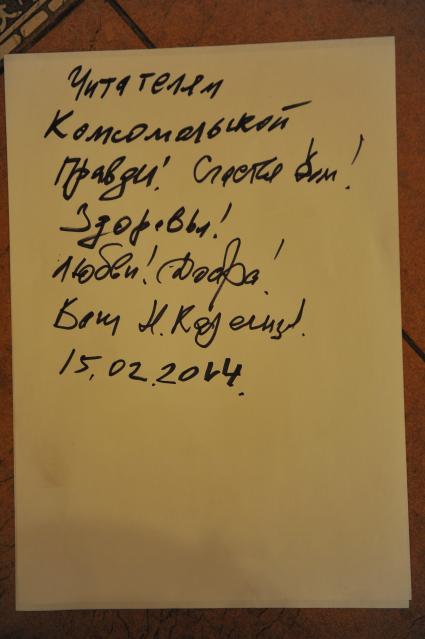 Читателям
Комсомольской
Правды! Счастья Вам!
Здоровья!
Любви! Добра!
Ваш Н.
15.02.2014.